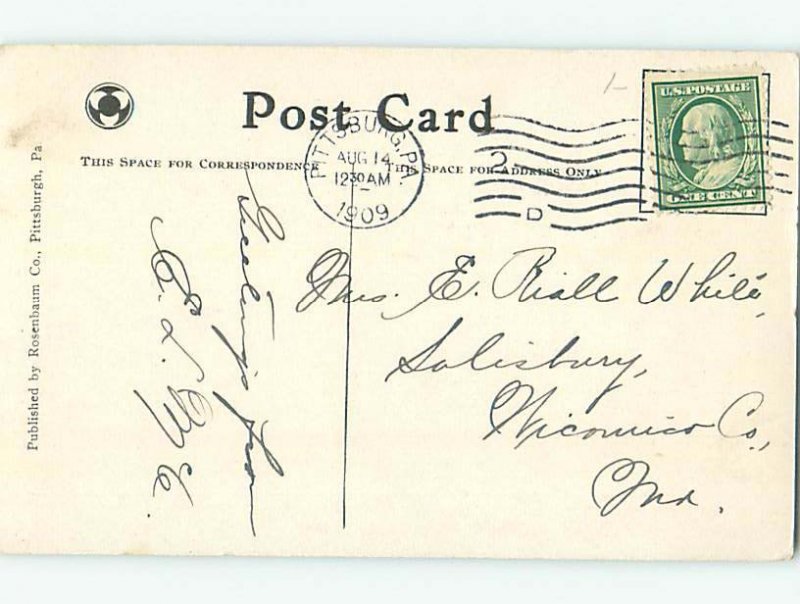 Post Card
THIS SPACE FOR CORRESPONDENCE
THIS SPACE FOR ADDRESS ONLY
PITTSBURG, PA.
AUG 14
12 30 AM
1909
2
D
U.S. POSTAGE
ONE CENT
Published by Rosenbaum Co., Pittsburgh, Pa
Greetings from
E. L. M. C.
Mrs. E. Riall White,
Salisbury,
Wicomico Co.,
Md.